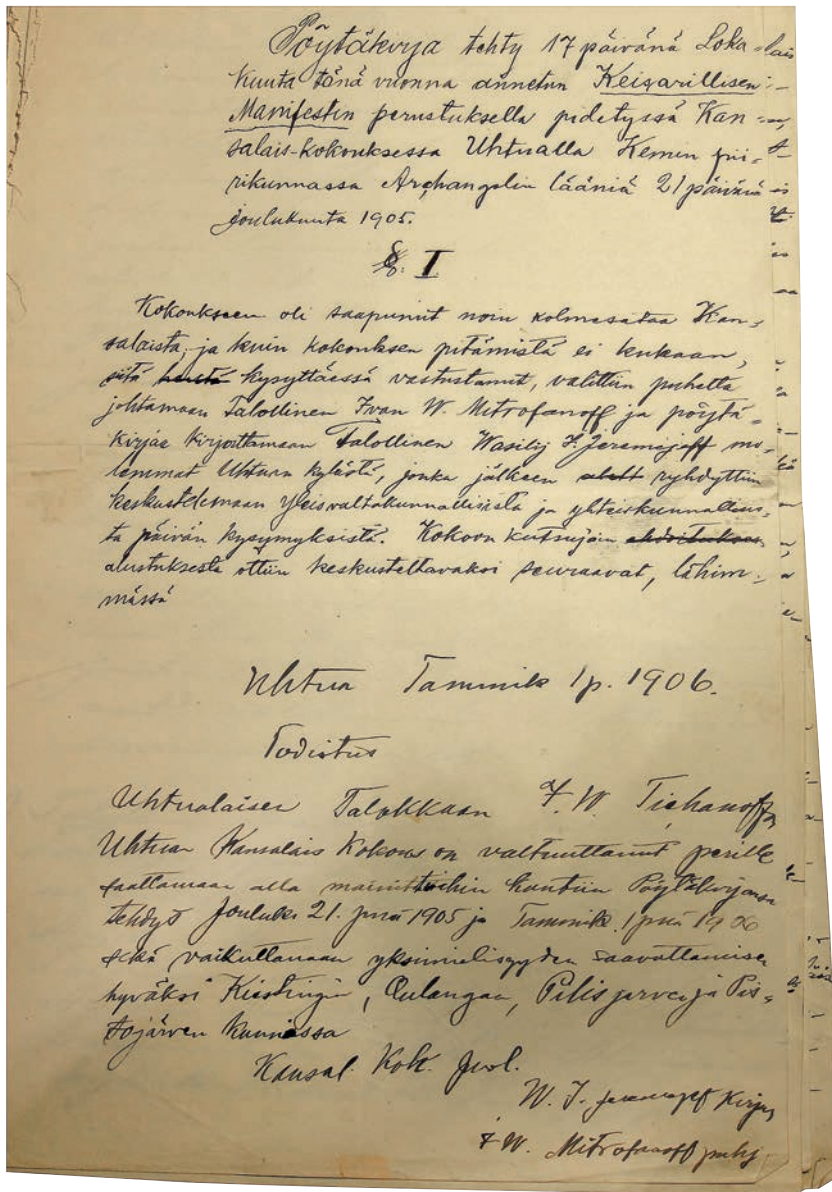 Pöytäkirja tehty 17 päivänä Loka-
kuuta tänä vuonna annetun Keisarillisen
Manifestin perustuksella pidetyssä Kan-
salais-kokouksessa Uhtualla Kemin pii-
rikunnassa Archangelin lääniä 21 päivänä
joulukuuta 1905.
§. I
Kokoukseen oli saapunut noin kolmesataa Kan-
salaista, ja kuin kokouksen pitämistä ei kukaan,
siitä kysyttäessä vastustanut, valittiin puhetta
johtamaan Talollinen Ivan W. Mitrofanoff ja pöytä-
kirjaa kirjoittamaan Talollinen Wasilij Jeremejeff mo-
lemmat Uhtuan kylästä, jonka jälkeen ryhdyttiin
keskustelemaan yleisvaltakunnallisista ja yhteiskunnallisis-
ta päivän kysymyksistä. Kokoon kutsujain
alustuksesta otttiin keskusteltavaksi seuraavat, lähim-
mässä
Uhtua Tammik 1p. 1906.
Todistus
Uhtualaisen Talokkaan F. W. Tichanoffin
Uhtuan Kansalais Kokous on valtuuttanut perille
saattamaan alla mainittuihin kuntiin Pöytäkirjansa
tehdyt Jouluk. 21. pnä 1905 ja Tammik. 1 pnä 1906
sekä vaikuttamaan yksimielisyyden saavuttamisen
hyväksi Kiestingin, Oulangan, Pilisjärven ja Pis-
tojärven kunnissa
Kansal. Kok. puol.
W. J. Jeremejeff Kirjuri
W. Mitrofanoff puhj